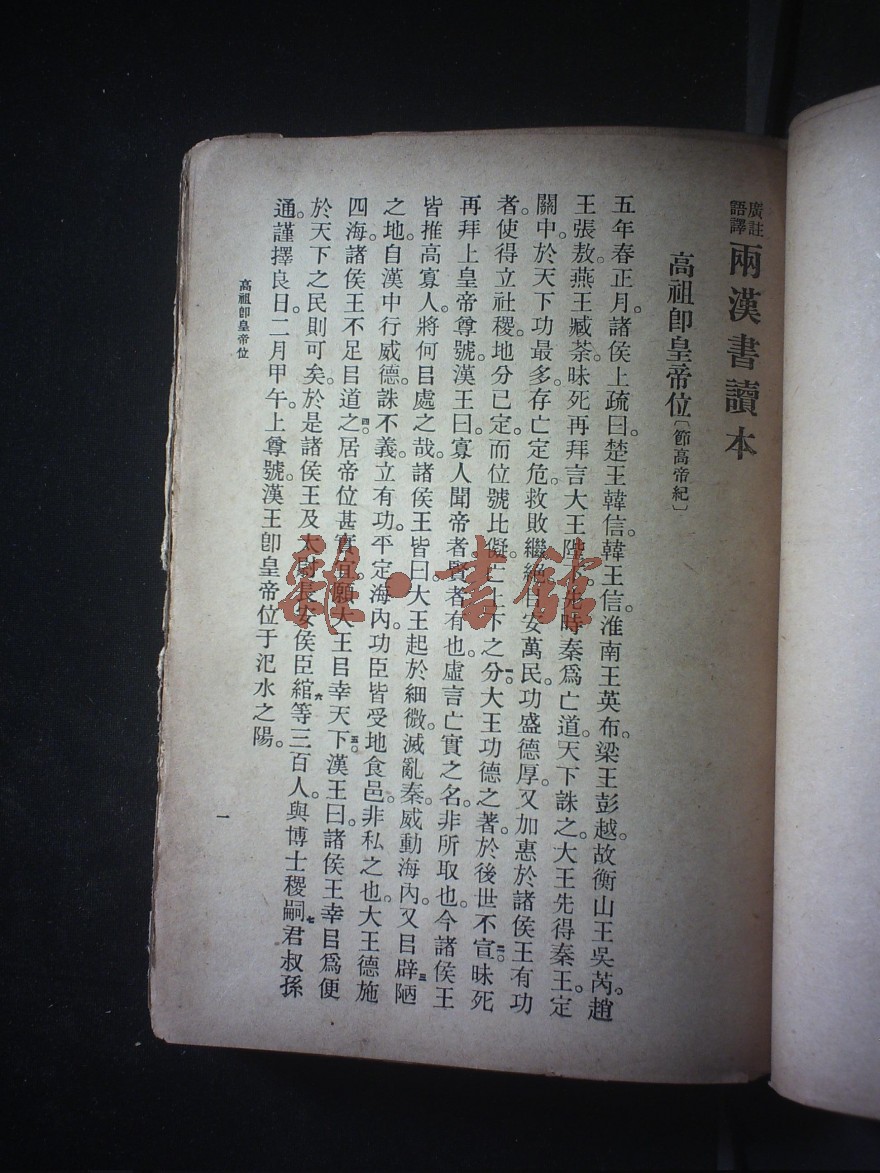 廣註
語譯
兩漢書讀本
高祖卽皇帝位〔節高帝紀〕
五年春正月。諸侯上疏曰。楚王韓信。韓王信。淮南王英布。梁王彭越。故衡山王吳芮。趙
王張敖。燕王臧荼。昧死再拜言大王陛下。先時秦爲亡道。天下誅之。大王先得秦王。定
關中。於天下功最多。存亡定危。救敗繼絕。㠯安萬民。功盛德厚。又加惠於諸侯王有功
者。使得立社稷。地分已定。而位號比儗。亡上下之分。一大王功德之著。於後世不宣。二昧死
再拜上皇帝尊號。漢王曰。寡人聞帝者賢者有也。虛言亡實之名。非所取也。今諸侯王
皆推高寡人。將何㠯處之哉。諸侯王皆曰。大王起於細微。滅亂秦。威動海內。又㠯辟陋三
之地。自漢中行威德。誅不義。立有功。平定海內。功臣皆受地食邑。非私之也。大王德施
四海。諸侯王不足㠯道之。四居帝位甚實宜。願大王㠯幸天下。五漢王曰。諸侯王幸㠯爲便
於天下之民。則可矣。於是諸侯王及太尉長安侯臣綰六等三百人。與博士稷嗣君七叔孫
通。謹擇良日二月甲午。上尊號。漢王卽皇帝位于汜水之陽。
高祖卽皇帝位
一
雜·書館